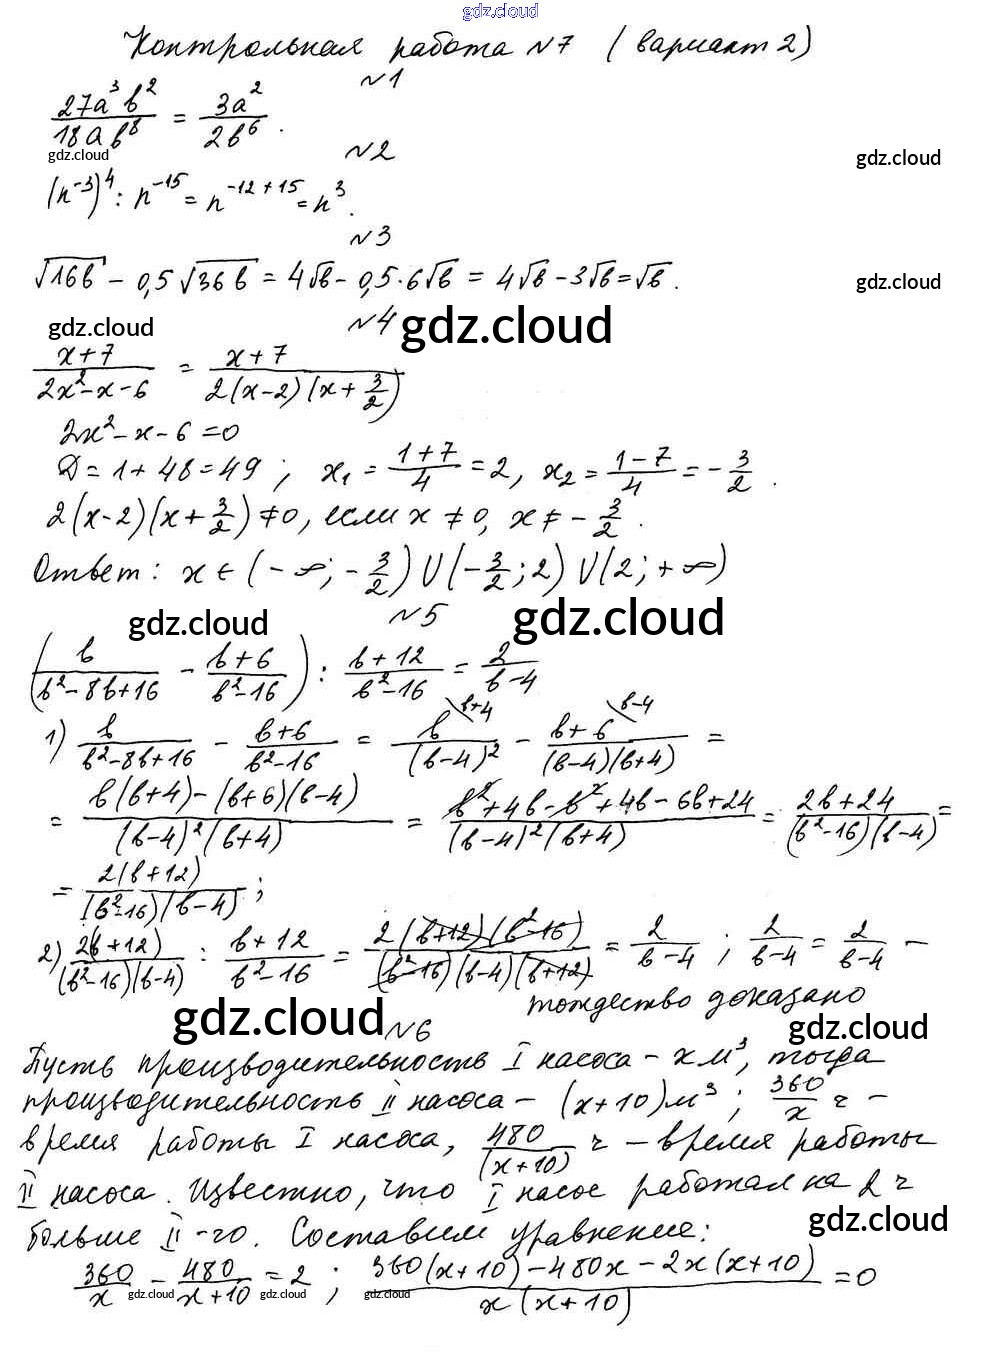 gdz.cloud
Контрольная работа №7 (вариант 2)
№1
27a³b²/18ab⁸ = 3a²/2b⁶.
gdz.cloud
№2
gdz.cloud
(n⁻³)⁴ : n⁻¹⁵ = n⁻¹²⁺¹⁵ = n³.
№3
√16b - 0,5√36b = 4√b - 0,5·6√b = 4√b - 3√b = √b.
gdz.cloud
gdz.cloud
№4
gdz.cloud
(x+7)/(2x²-x-6) = (x+7)/(2(x-2)(x+3/2))
2x²-x-6=0
D=1+48=49; x₁ = (1+7)/4 = 2, x₂ = (1-7)/4 = -3/2.
2(x-2)(x+3/2) ≠0, если x ≠ 0, x ≠ -3/2.
Ответ: x ∈ (-∞; -3/2) U (-3/2; 2) U (2; +∞)
gdz.cloud
№5
gdz.cloud
(b/(b²-8b+16) - (b+6)/(b²-16)) : (b+12)/(b²-16) = 2/(b-4)
1) b/(b²-8b+16) - (b+6)/(b²-16) = b\b+4/(b-4)² - b+6\b-4/((b-4)(b+4)) =
= (b(b+4)-(b+6)(b-4))/((b-4)²(b+4)) = (b²+4b-b²+4b-6b+24)/((b-4)²(b+4)) = (2b+24)/((b²-16)(b-4)) =
= 2(b+12)/((b²-16)(b-4));
2) 2(b+12)/((b²-16)(b-4)) : (b+12)/(b²-16) = 2(b+12)(b²-16)/((b²-16)(b-4)(b+12)) = 2/(b-4); 2/(b-4) = 2/(b-4) -
тождество доказано
gdz.cloud
№6
gdz.cloud
Пусть производительность I насоса - x м³, тогда
производительность II насоса - (x+10)м³; 360/x ч -
время работы I насоса, 480/(x+10) ч - время работы
II насоса. Известно, что I насос работал на 2 ч
больше II-го. Составим уравнение:
gdz.cloud
360/x - 480/(x+10) = 2; (360(x+10)-480x-2x(x+10))/(x(x+10)) = 0
gdz.cloud gdz.cloud gdz.cloud